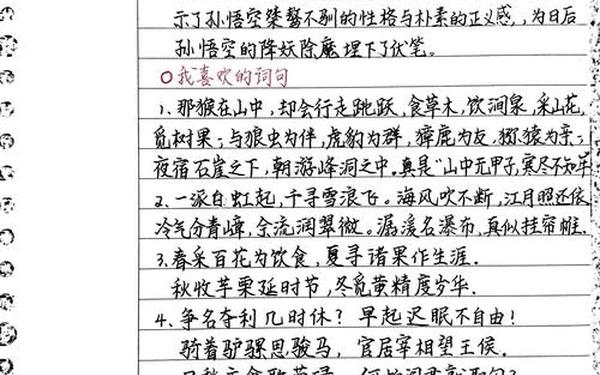 示了孙悟空桀骜不驯的性格与朴素的正义感,为日后
孙悟空的降妖除魔埋下了伏笔。
○我喜欢的词句
1、那猴在山中,却会行走跳跃,食草木,饮涧泉,采山花,
觅树果;与狼虫为伴,虎豹为群,獐鹿为友,猕猿为亲;
夜宿石崖之下,朝游峰洞之中。真是“山中无甲子,寒尽不知年
2、一派白虹起,千寻雪浪飞。海风吹不断,江月照还依
冷气分青嶂,余流润翠微。潺湲名瀑布,真似挂帘帷.
3.春采百花为饮食,夏寻诸果作生涯.
秋收芋栗延时节,冬觅黄精度岁华.
4、争名夺利几时休?早起迟眠不自由!
骑着驴骡思骏马,官居宰相望王侯.